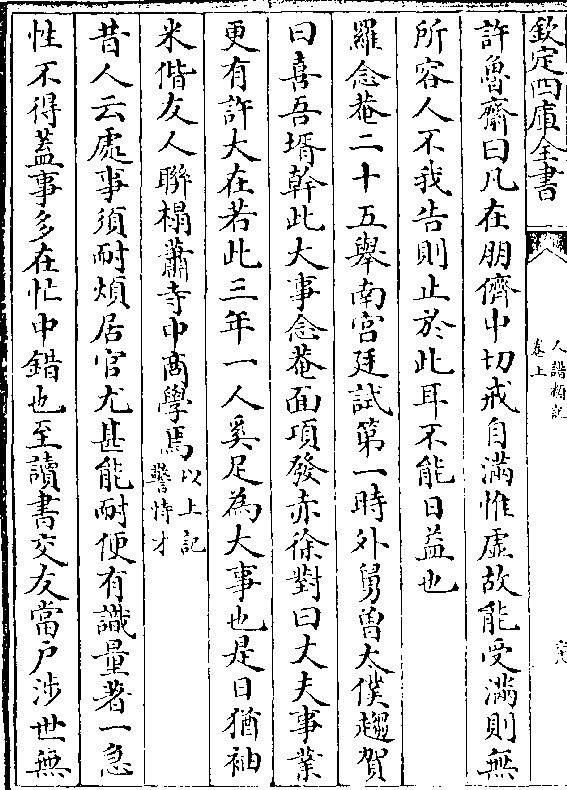 欽定四庫全書
人譜類記
卷上
六八
許魯齋曰凡在朋儕中切戒自滿惟虛故能受滿則無
所容人不我告則止於此耳不能日益也
羅念菴二十五舉南宮廷試第一時外舅曾太僕趨賀
曰喜吾壻幹此大事念菴面項發赤徐對曰丈夫事業
更有許大在若此三年一人奚足為大事也是日猶袖
米偕友人聯榻蕭寺中商學焉以上記警恃才
昔人云處事須耐煩居官尤甚能耐便有識量著一急
性不得蓋事多在忙中錯也至讀書交友當戶涉世無